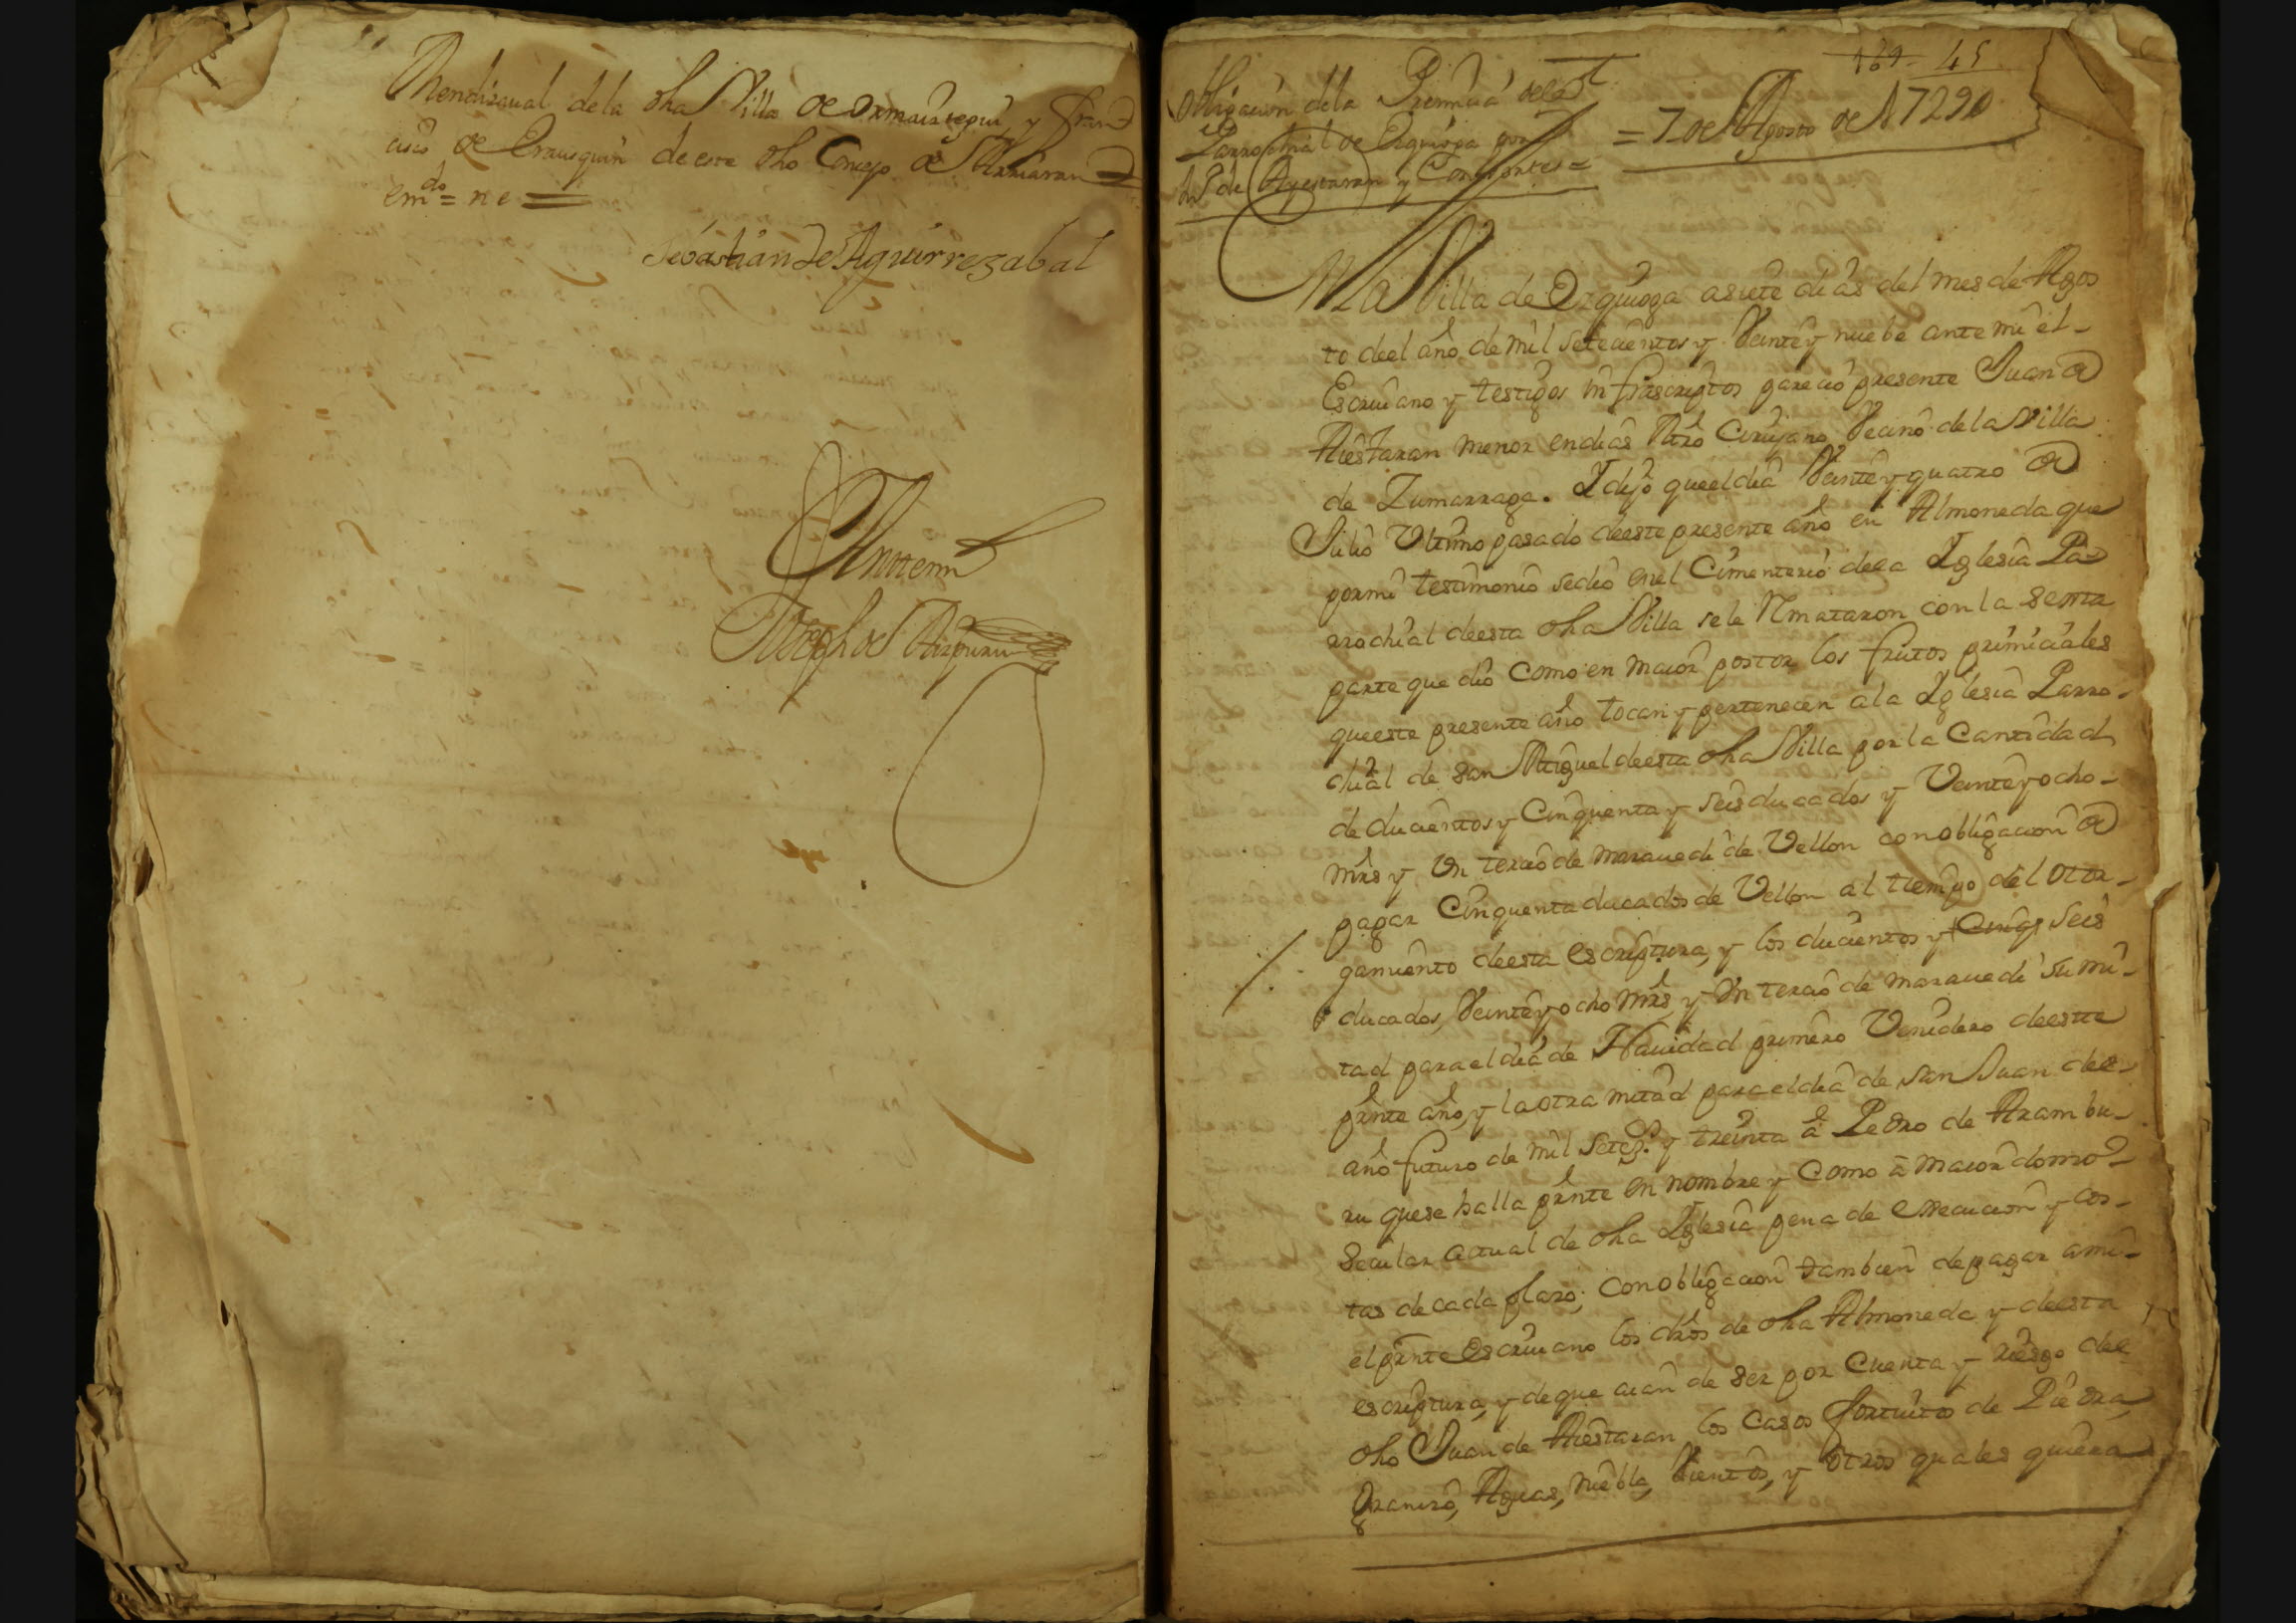 Mendizaual de la dha Villa de Ormaiztegui, y Fran
cisco de Erausquin de este dho Concejo de Arriaran =
em.do = n e =
Sebastian de Aguirrezabal
Ante mi
Joseph de Aizpuru
169 - 45
Obligazion de la Primicia de la
Parrochial de Ezquioga por
Ju.º de Ayestaran y Consortes =
= 7 de Agosto de 1729
En la Villa de Ezquioga a siete dias del mes de Agos
to de el año de mil setecientos y Veinte y nuebe ante mi el
Escriuano y testigos infrascriptos parecio presente Juan de
Aiestaran menor en dias Mro Cirujano Vecino de la Villa
de Zumarraga. I dijo que el dia Veinte y quatro de
Julio Ultimo pasado de este presente año en Almoneda que
por mi testimonio se dio en el Cimenterio de la Iglesia Pa
rrochial de esta dha Villa se le Rmataron con la sexta
parte que dio como en maior postor los frutos primiciales
que este presente año tocan y pertenecen a la Iglesia Parro-
chial de San Miguel de esta dha Villa por la Cantidad
de ducientos y Cinquenta y seis ducados y Veinte y ocho-
mrs y Un tercio de marauedi de Vellon con obligacion de
pagar Cinquenta ducados de Vellon al tiempo del otor-
gamiento de esta escriptura, y los ducientos y Cinq seis
ducados, Veinte y ocho mrs y Un tercio de marauedi su mi-
tad para el dia de Nauidad primero Venidero de este
prnte año, y la otra mitad para el dia de San Juan del
año futuro de mil setez.s y treinta a Pedro de Arambu-
ru que se halla prnte en nombre y Como a maiordomo
secular actual de dha Iglesia pena de execucion y cos-
tas de cada plazo; con obligacion tambien de pagar a mi
el prnte Escriuano los dros de dha Almoneda y de esta
escriptura, y de que aian de ser por Cuenta y riesgo del
dho Juan de Aiestaran los casos fortuitos de Piedra
Granizo, Aguas, Niebla, Vientos, y otros quales quiera